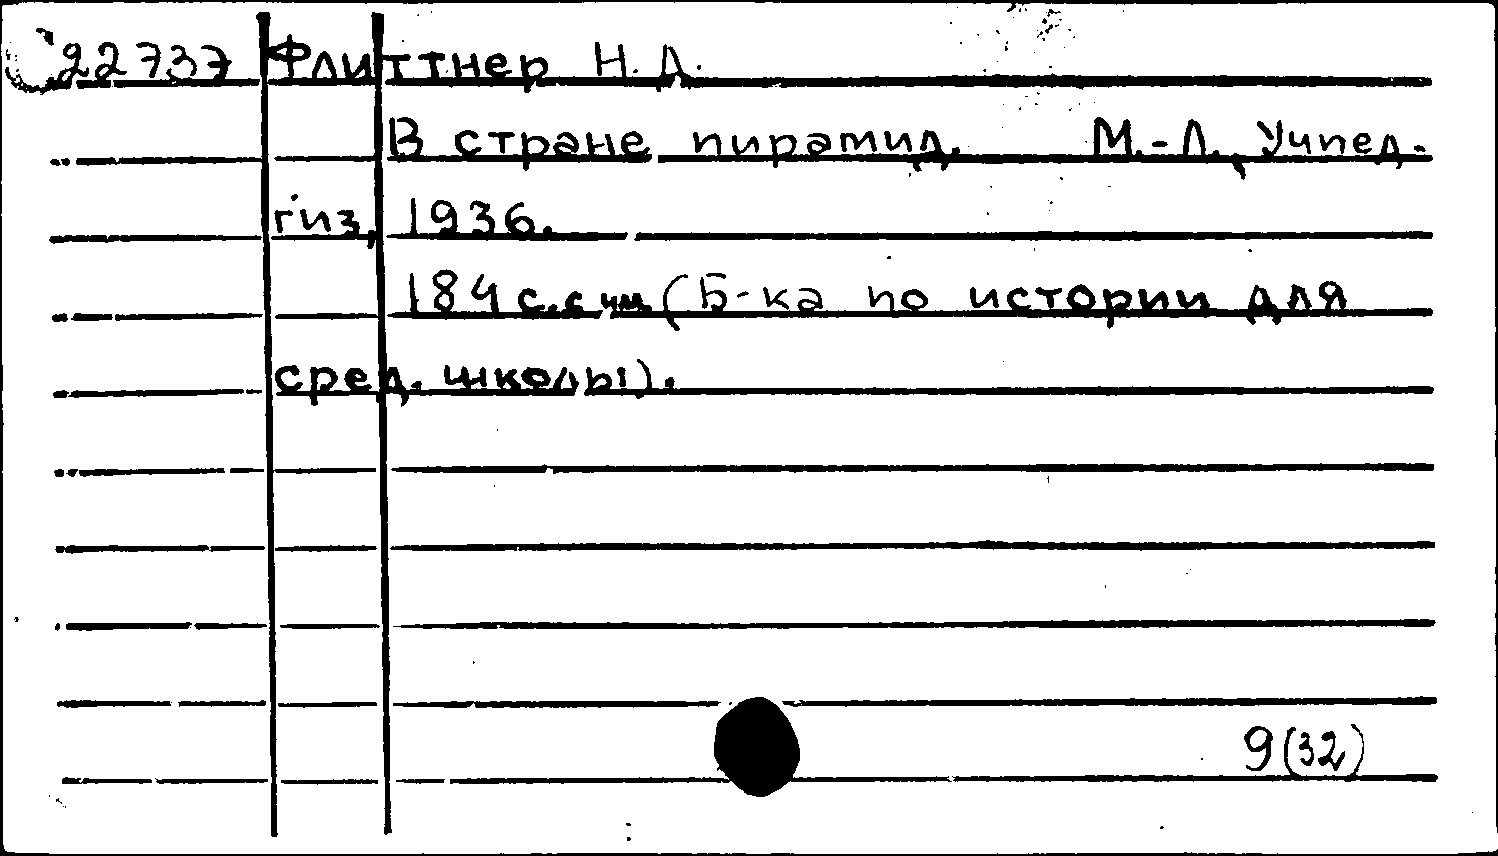 22737 Флиттнер Н. Д.
В стране пирамид. М.-Л., Учпед-
гиз, 1936.
184 с. с илл. (Б-ка по истории для
сред. школы).
9(32)